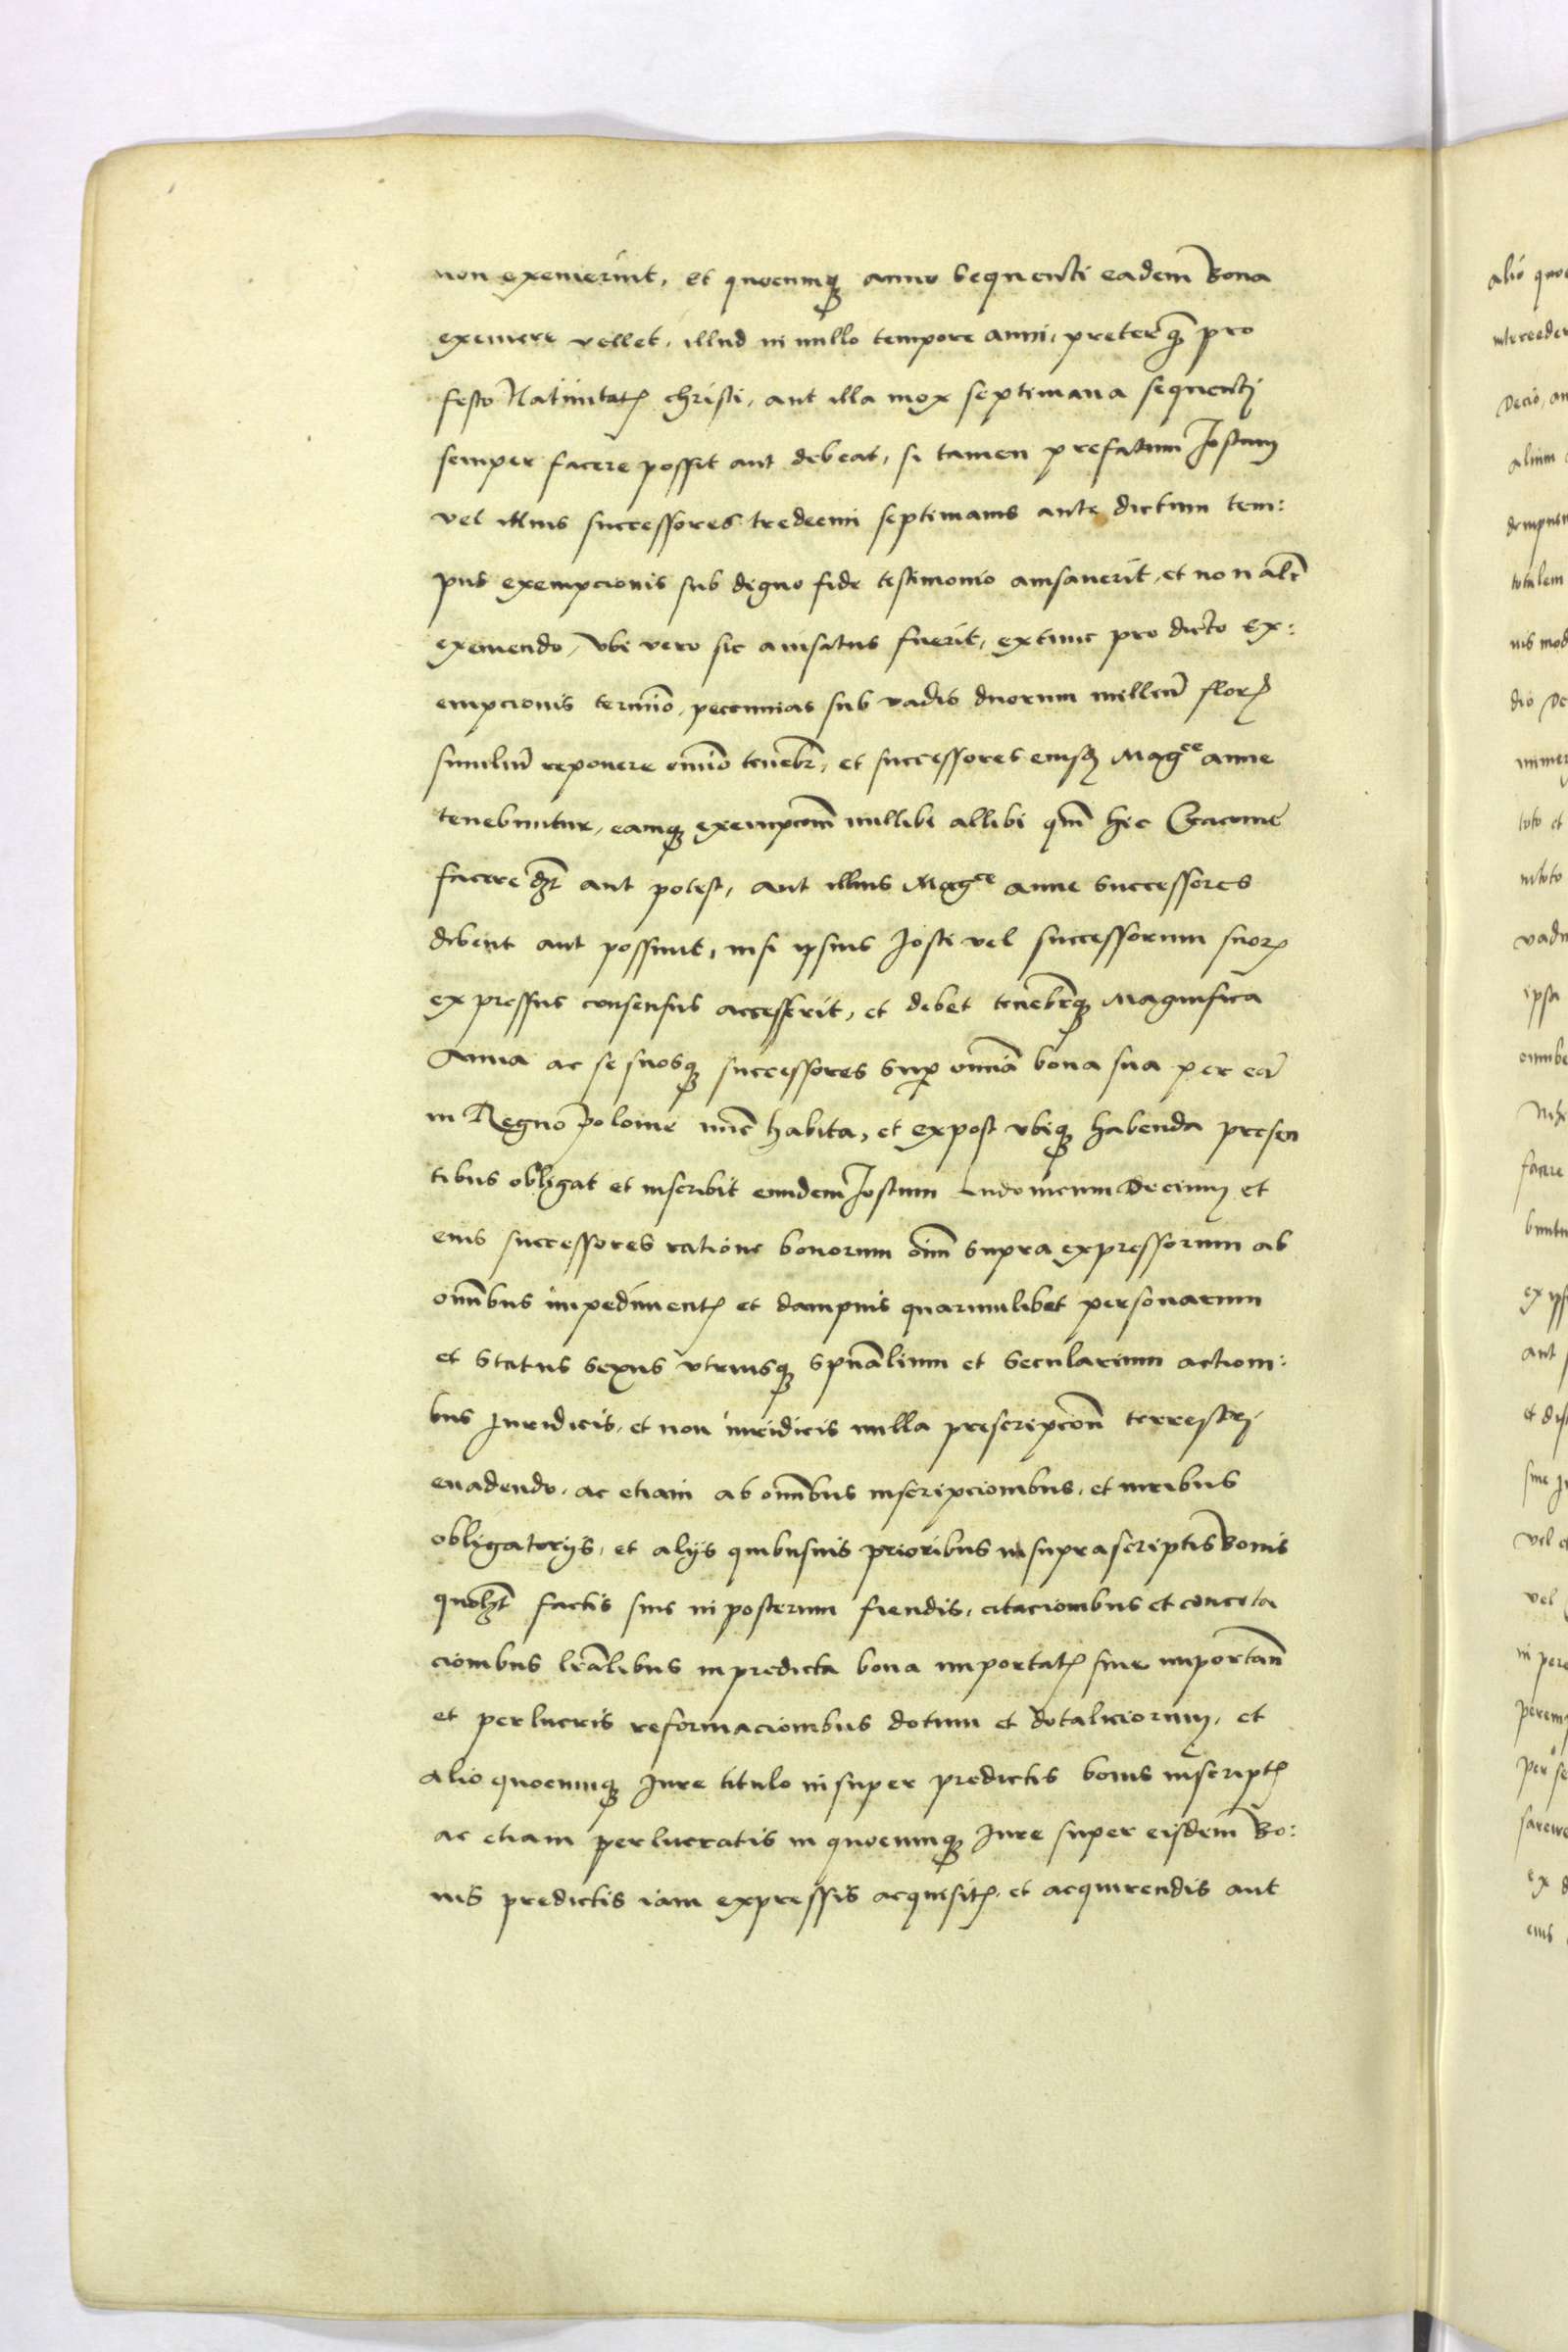 non exemerint, et quocunq anno sequenti eadem bona
exemere vellet, illud in nullo tempore anni, preterq pro
festo Natiuitatis christi, aut illa mox septimana sequenti
semper facere possit aut debeat, si tamen prefatum Jostum
vel illius successores tredecim septimanis ante dictum tem:
pus exempcionis sub digno fide testimonio auisauerit, et non alr
exemendo, vbi vero sic auisatus fuerit, extunc pro dicto ex:
empcionis termio, peccunias sub vadio duorum milleu flor
similiu reponere omnio tenebr, et successores eiusq Magce anne
tenebuntur, eamq exempcom nullibi allibi qm hic Cracouie
facere dz aut potest, aut illius Magce anne successores
debent aut possunt, nisi ipsius Josti vel successorum suor
expressus consensus accesserit, et debet tenebrq Magnifica
Anna ac se suosq successores sup omnia bona sua per ea
in Regno polonie nuc habita, et expost vbiq habenda presen
tibus obligat et inscribit eundem Jostum Ludouicum Decium et
eius successores ratione bonorum oim supra expressorum ab
omibus impediment et dampnis quarumlibet personarum
et status sexus vtriusq spualium et secularium actioni:
bus Juridicis, et non iuridicis nulla prescripcon terrestri
euadendo, ac etiam ab omibus inscripcionibus, et iuribus
obligatorijs, et alijs quibusuis prioribus in suprascriptis bonis
quolz factis siue in posterum fiendis, citacionibus et concita
cionibus lralibus in predicta bona importat siue importan
et perlucris reformacionibus dotum et dotaliciorum, et
alio quocunq Jure titulo in super predictis bonis inscript
ac etiam perlucratis in quocunq Jure super eisdem bo:
nis predictis iam expressis acquisit, et acquirendis aut